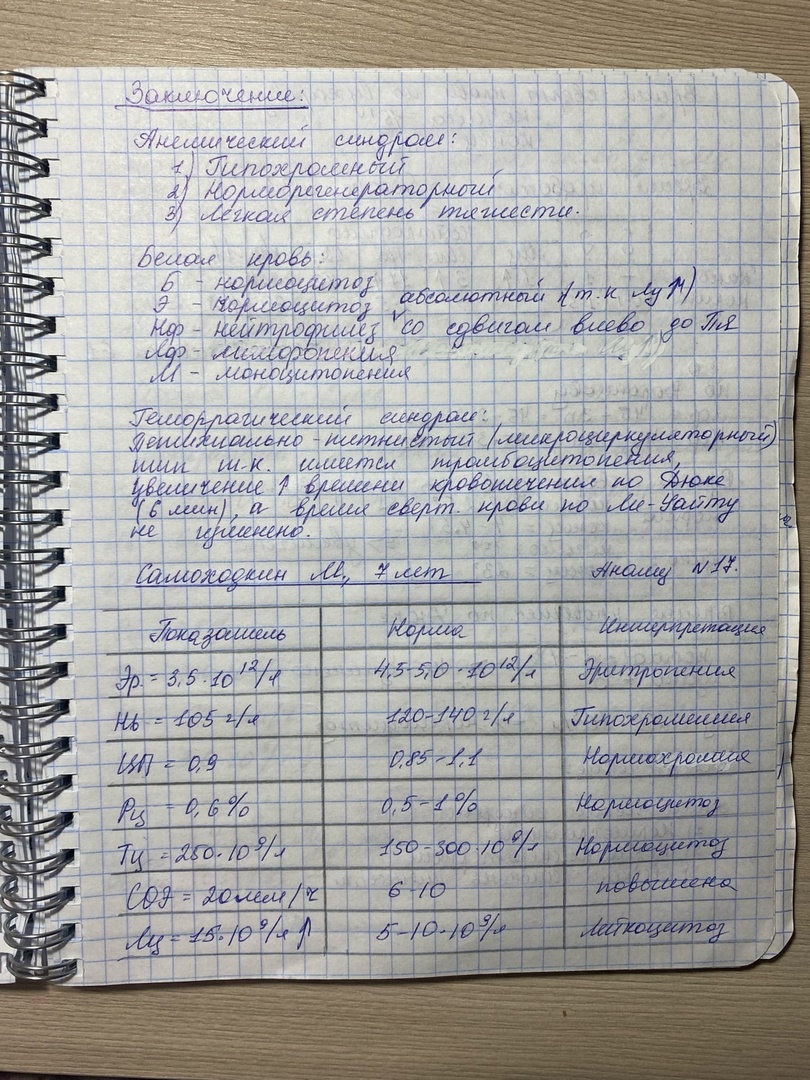 Заключение:
Анемический синдром:
1) Гипохромный
2) Норморегенераторный
3) Легкая степень тяжести.
Белая кровь:
Б - нормоцитоз
Э - нормоцитоз абсолютный (т.к Лц↑)
Нф - нейтрофилёз со сдвигом влево до ПЯ
Лф - лимфопения
М - моноцитопения
Геморрагический синдром:
Петехиально-пятнистый (микроциркуляторный)
тип т.к. имеется тромбоцитопения,
увеличение ↑ времени кровотечения по Дюке
(6 мин), а время сверт. крови по Ли-Уайту
не изменено.
Самоходкин М., 7 лет Анализ №17.
Показатель Норма Интерпретация
Эр. = 3,5·10¹²/л 4,5-5,0·10¹²/л Эритропения
Hb = 105 г/л 120-140 г/л Гипохромемия
ЦП = 0,9 0,85-1,1 Нормохромия
Рц = 0,6% 0,5-1% Нормоцитоз
Тц = 250·10⁹/л 150-300·10⁹/л Нормоцитоз
СОЭ = 20мм/ч 6-10 повышена
Лц = 15·10⁹/л ↑ 5-10·10⁹/л Лейкоцитоз